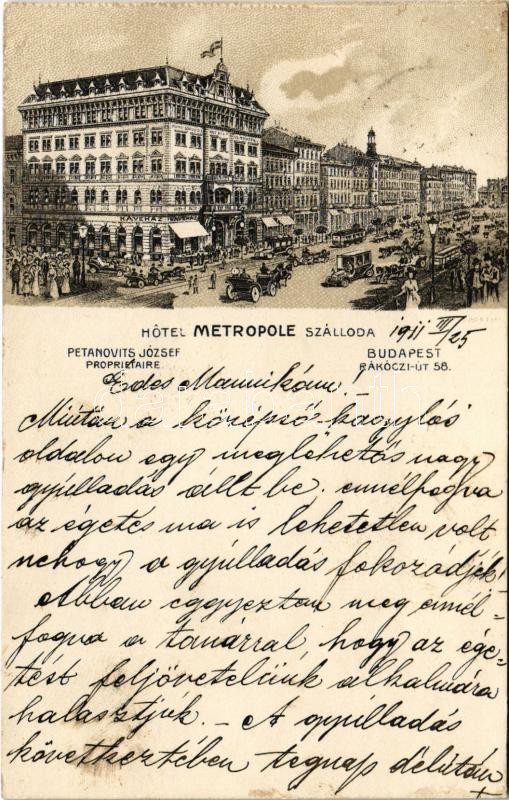 KÁVÉHÁZ
HÔTEL METROPOLE SZÁLLODA
1911 III/25
PETANOVITS JÓZSEF
PROPRIÉTAIRE.
BUDAPEST
RÁKÓCZI-ÚT 58.
Édes Mamikám! –
Miután a középső kagylós
oldalon egy meglehetős nagy
gyúlladás állt be. ennélfogva
az égetés ma is lehetetlen volt
nehogy a gyúlladás fokozódjék!
Abban eggyeztem meg ennél-
fogva a tanárral, hogy az ége-
tést feljövetelünk alkalmára
halasztjuk. – A gyulladás
következtében tegnap délután